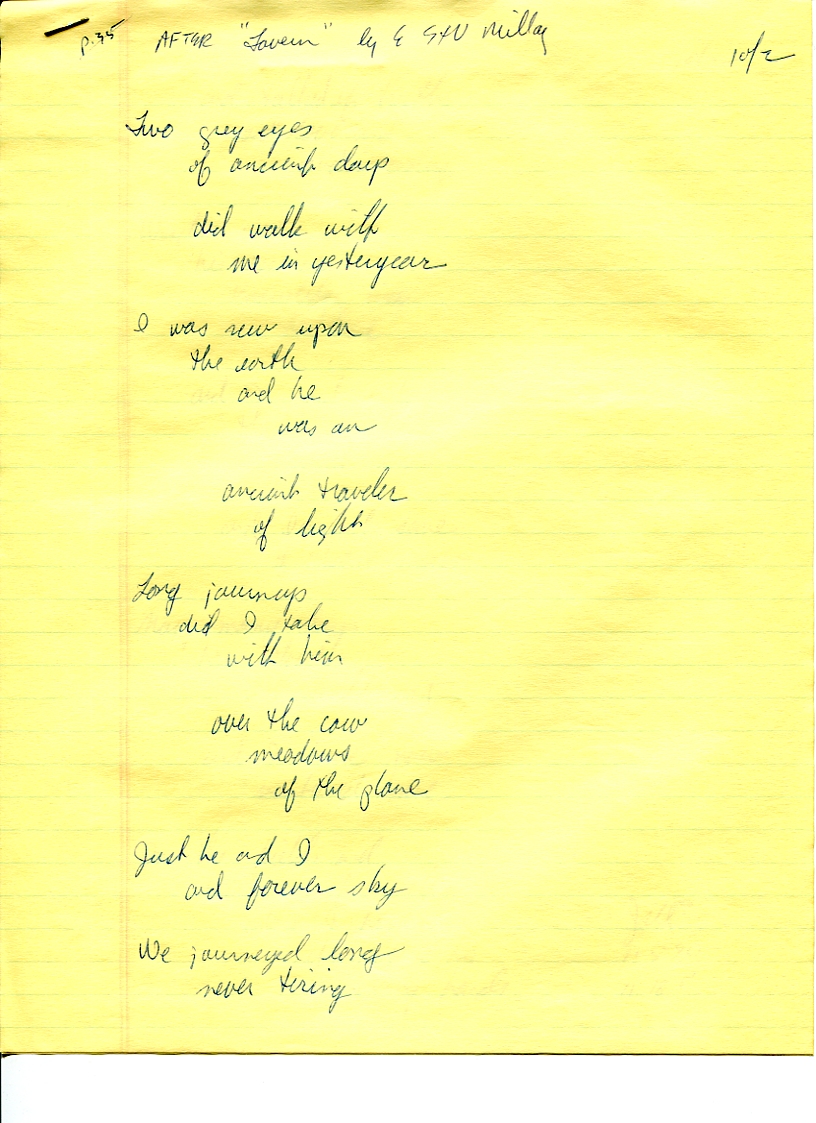 p.35 AFTER "Tavern" by E StV Millay
1 of 2
Two grey eyes
of ancient days
did walk with
me in yesteryear
I was new upon
the earth
and he
was an
ancient traveler
of light
Long journeys
did I take
with him
over the cow
meadows
of the plane
Just he and I
and forever sky
We journeyed long
never tiring